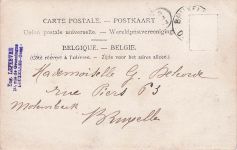 CARTE POSTALE. — POSTKAART
Union postale universelle. — Wereldpostvereeniging.
BELGIQUE. — BELGIE.
(Côté réservé à l'adresse. — Zijde voor het adres alleen.)
Eug. LEFEBVRE
Mademoiselle G.
rue Piers 63
Molenbeek
Bruxelles